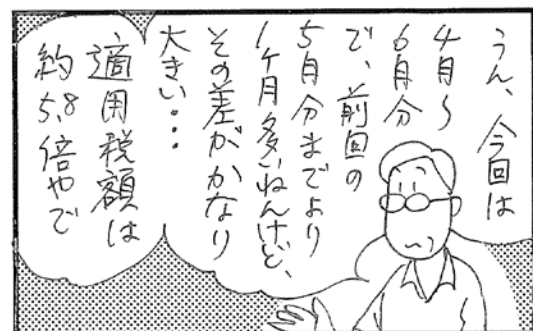 うん、今回は
4月〜
6月分
で、前回の
5月分までより
1ヶ月多いねんけど、
その差がかなり
大きい・・・
適用税額は
約5.8倍やで